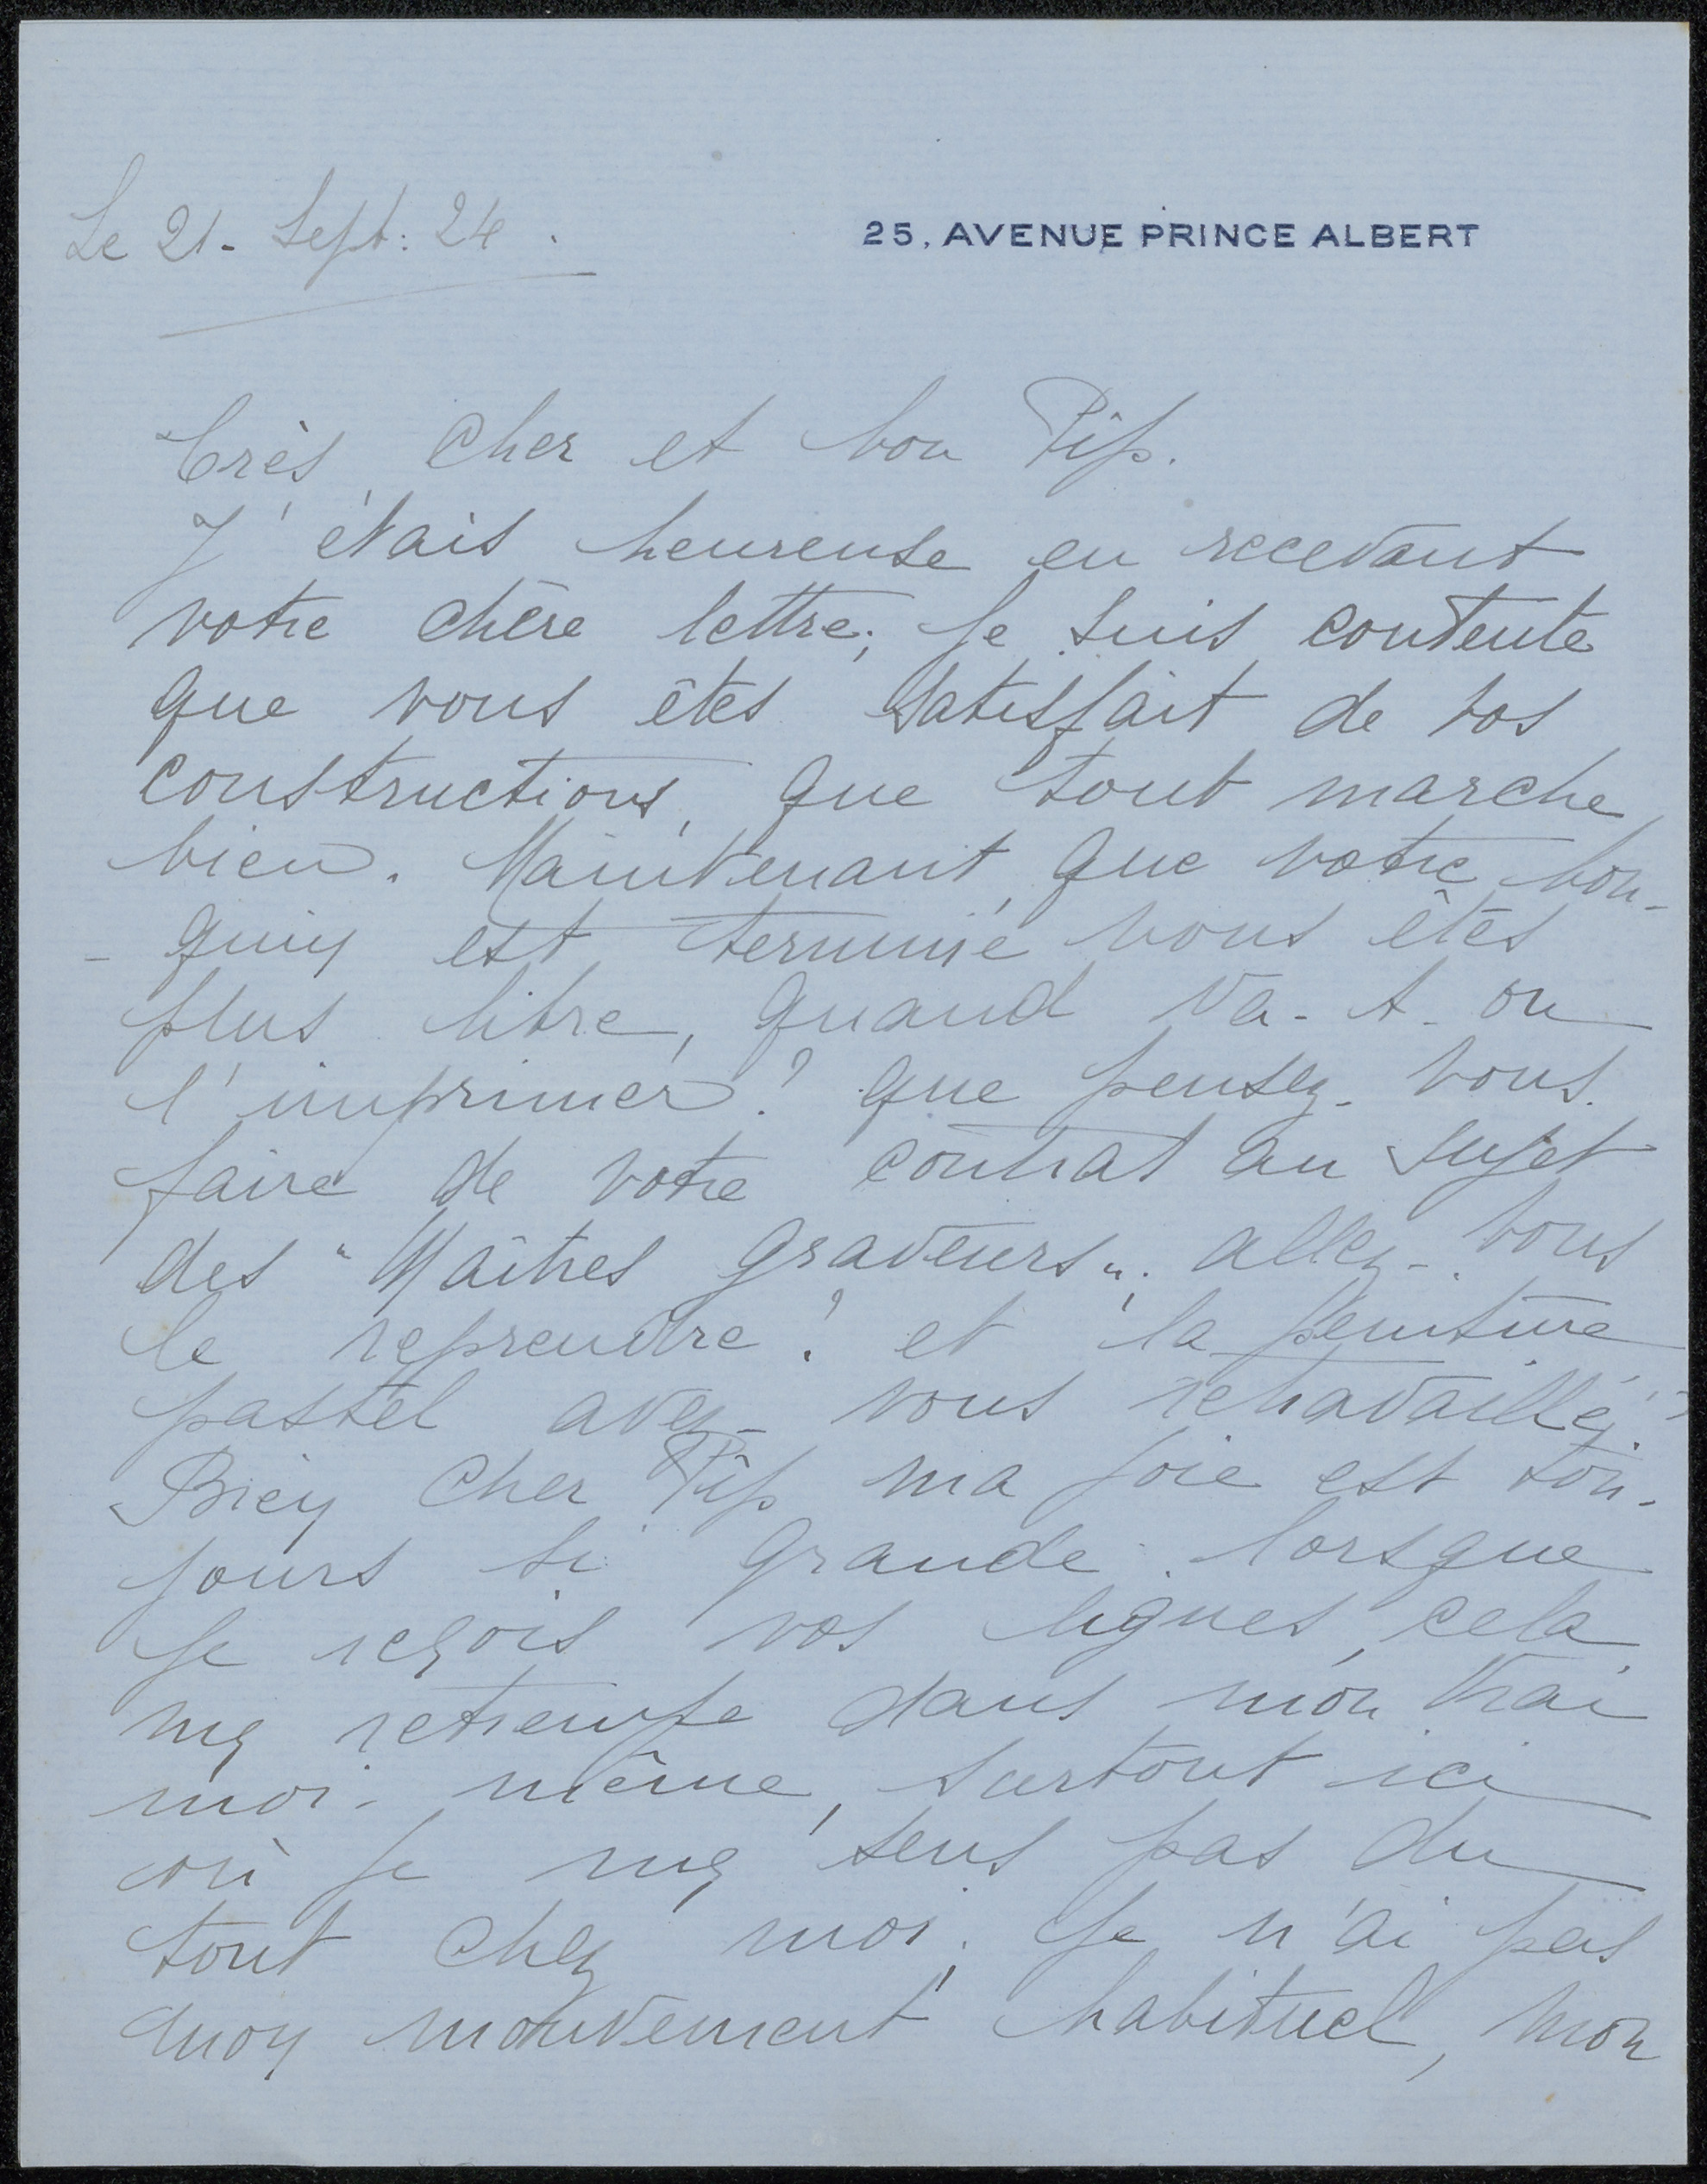 Le 21- Sept: 24.
25, AVENUE PRINCE ALBERT
Très cher et bon Pîp.
J'étais heureuse en recevant
votre chère lettre; je suis contente
que vous êtes satisfait de vos
constructions, que tout marche
bien. Maintenant que votre bou-
- quin est terminé vous êtes
plus libre, quand va-t-on
l'imprimer? que pensez-vous
faire de votre contrat au sujet
des "Maîtres graveurs". allez-vous
le reprendre? et la peinture
pastel avez-vous retravaillé?
Bien cher Pîp ma joie est tou-
jours si grande lorsque
je reçois vos lignes, cela
me retrempe dans mon vrai
moi-même, surtout ici
où je me sens pas du
tout chez moi. Je n'ai pas
mon mouvement habituel, mon